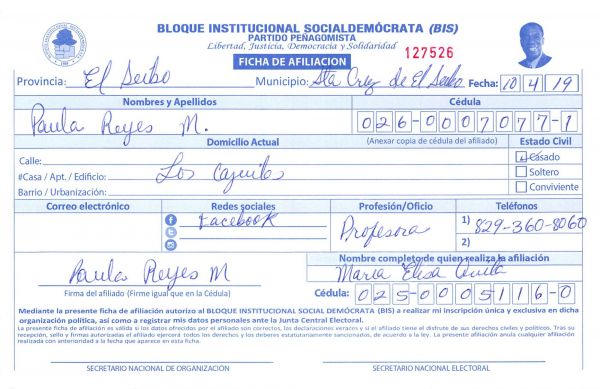 BLOQUE INSTITUCIONAL SOCIALDEMÓCRATA (BIS)
PARTIDO PEÑAGOMISTA
Libertad, Justicia, Democracia y Solidaridad
FICHA DE AFILIACION
127526
Provincia: El Seibo Municipio: Sta Cruz de El Seibo Fecha: 10 4 19
Nombres y Apellidos Cédula
Paula Reyes M. 026-0007077-1
Domicilio Actual (Anexar copia de cédula del afiliado) Estado Civil
Calle: Casado
#Casa / Apt. / Edificio: Los Cajuiles Soltero
Barrio / Urbanización: Conviviente
Correo electrónico Redes sociales Profesión/Oficio Teléfonos
Facebook Profesora 1) 829-360-8060
2)
Nombre completo de quien realiza la afiliación
Paula Reyes M Maria Elisa
Firma del afiliado (Firme igual que en la Cédula) Cédula: 025-0005116-0
Mediante la presente ficha de afiliación autorizo al BLOQUE INSTITUCIONAL SOCIAL DEMÓCRATA (BIS) a realizar mi inscripción única y exclusiva en dicha
organización política, así como a registrar mis datos personales ante la Junta Central Electoral.
La presente ficha de afiliación es válida si los datos ofrecidos por el afiliado son correctos, las declaraciones veraces y si el afiliado tiene el disfrute de sus derechos civiles y políticos. Tras su
recepción, sello y firmas autorizadas el afiliado ejercerá todos los derechos y los deberes estatutariamente sancionados, de acuerdo a la ley. La presente afiliación anula cualquier afiliación
realizada con anterioridad a la fecha que aparece en esta ficha.
SECRETARIO NACIONAL DE ORGANIZACIÓN SECRETARIO NACIONAL ELECTORAL